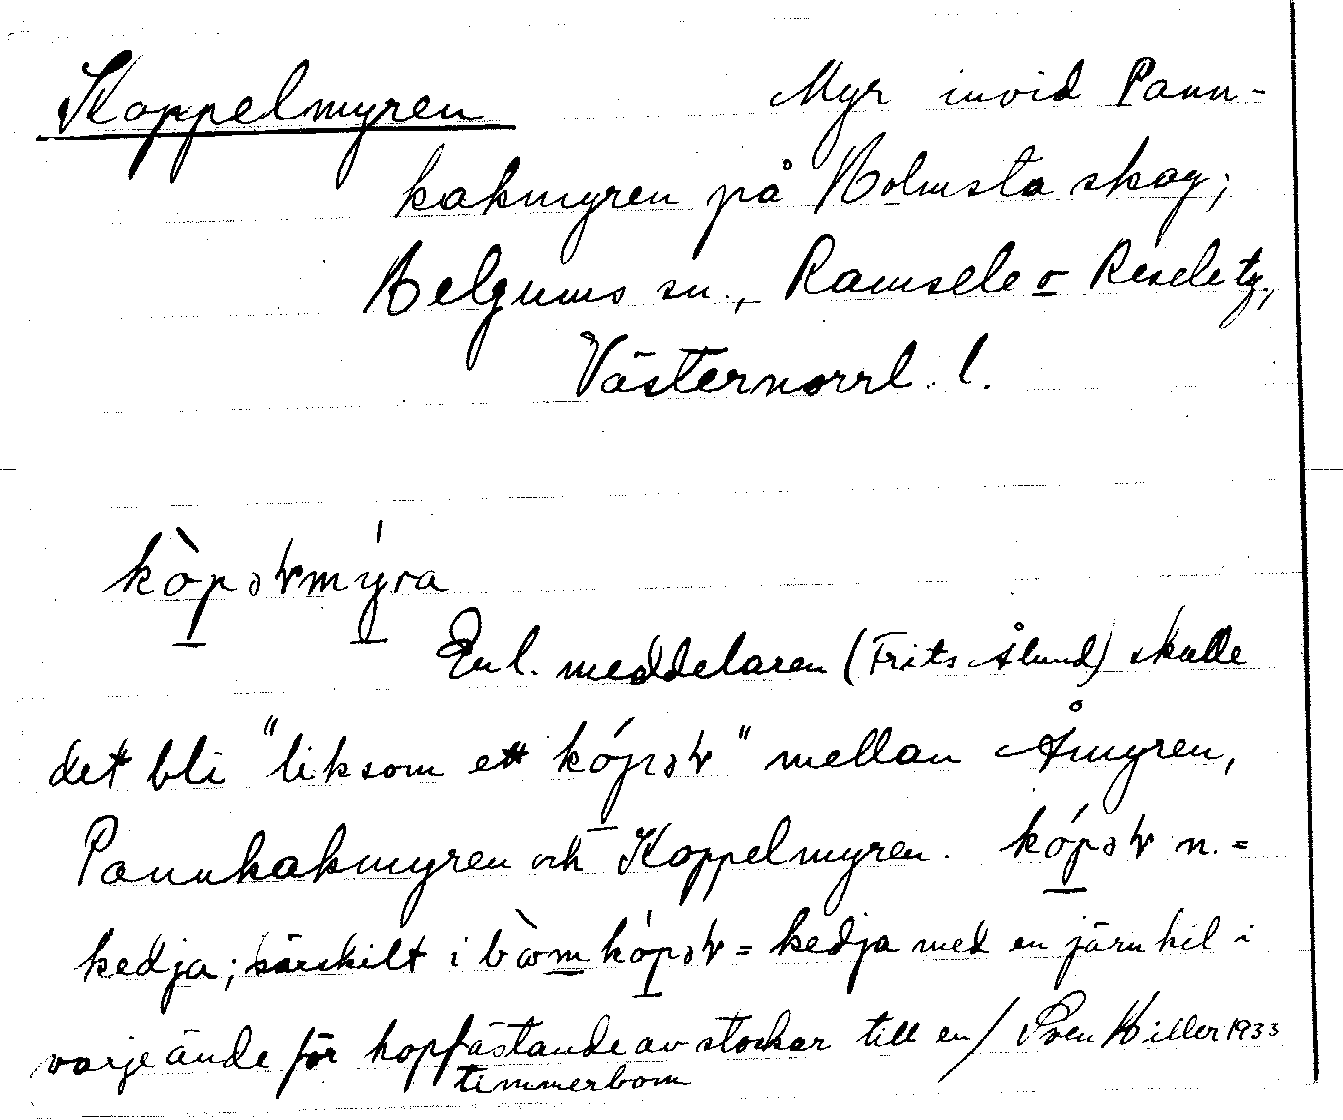 Koppelmyren
Myr invid Pann-
kakmyren på Holmsta skog;
Helgums sn., Ramsele o Resele tg.,
Västernorrl. l.
kòpəɫmýra
Enl. meddelaren (Frits Ålund) skulle
det bli "liksom ett kópəɫ" mellan Åmyren,
Pannkakmyren och Koppelmyren. kópəɫ n. =
kedja; särskilt i bòmkópəɫ = kedja med en järnkil i
varje ände för hopfästande av stockar till en/ Sven Hiller 1933
timmerbom